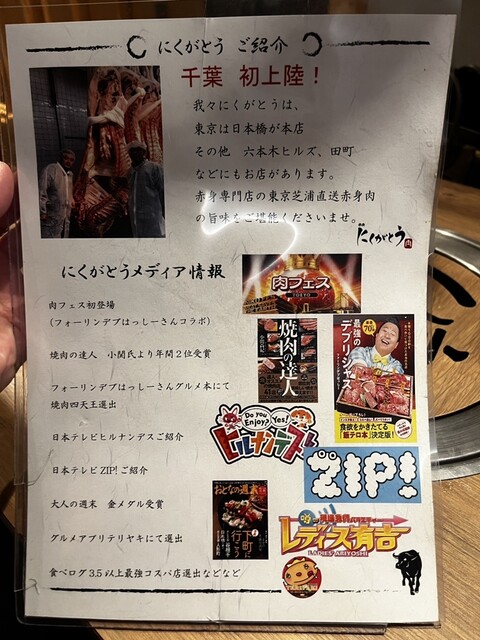 にくがとう ご紹介
千葉 初上陸！
我々にくがとうは、
東京は日本橋が本店
その他 六本木ヒルズ、田町
などにもお店があります。
赤身専門店の東京芝浦直送赤身肉
の旨味をご堪能くださいませ。
にくがとう
にくがとうメディア情報
肉フェス
TOKYO
肉フェス初登場
(フォーリンデブはっしーさんコラボ)
焼肉の達人 小関氏より年間2位受賞
フォーリンデブはっしーさんグルメ本にて
焼肉四天王選出
日本テレビヒルナンデスご紹介
日本テレビZIP!ご紹介
大人の週末 金メダル受賞
グルメアプリテリヤキにて選出
食べログ3.5以上最強コスパ店選出などなど
焼肉の達人
最強の
デブリシャス
食欲をかきたてる
「飯テロ本」決定版!
Do you Enjoy? Yes!
ヒルナンデス!
ZIP!
おとなの週末
下町に行こう
レディース有吉
LADIES ARIYOSHI
TERIYAKI